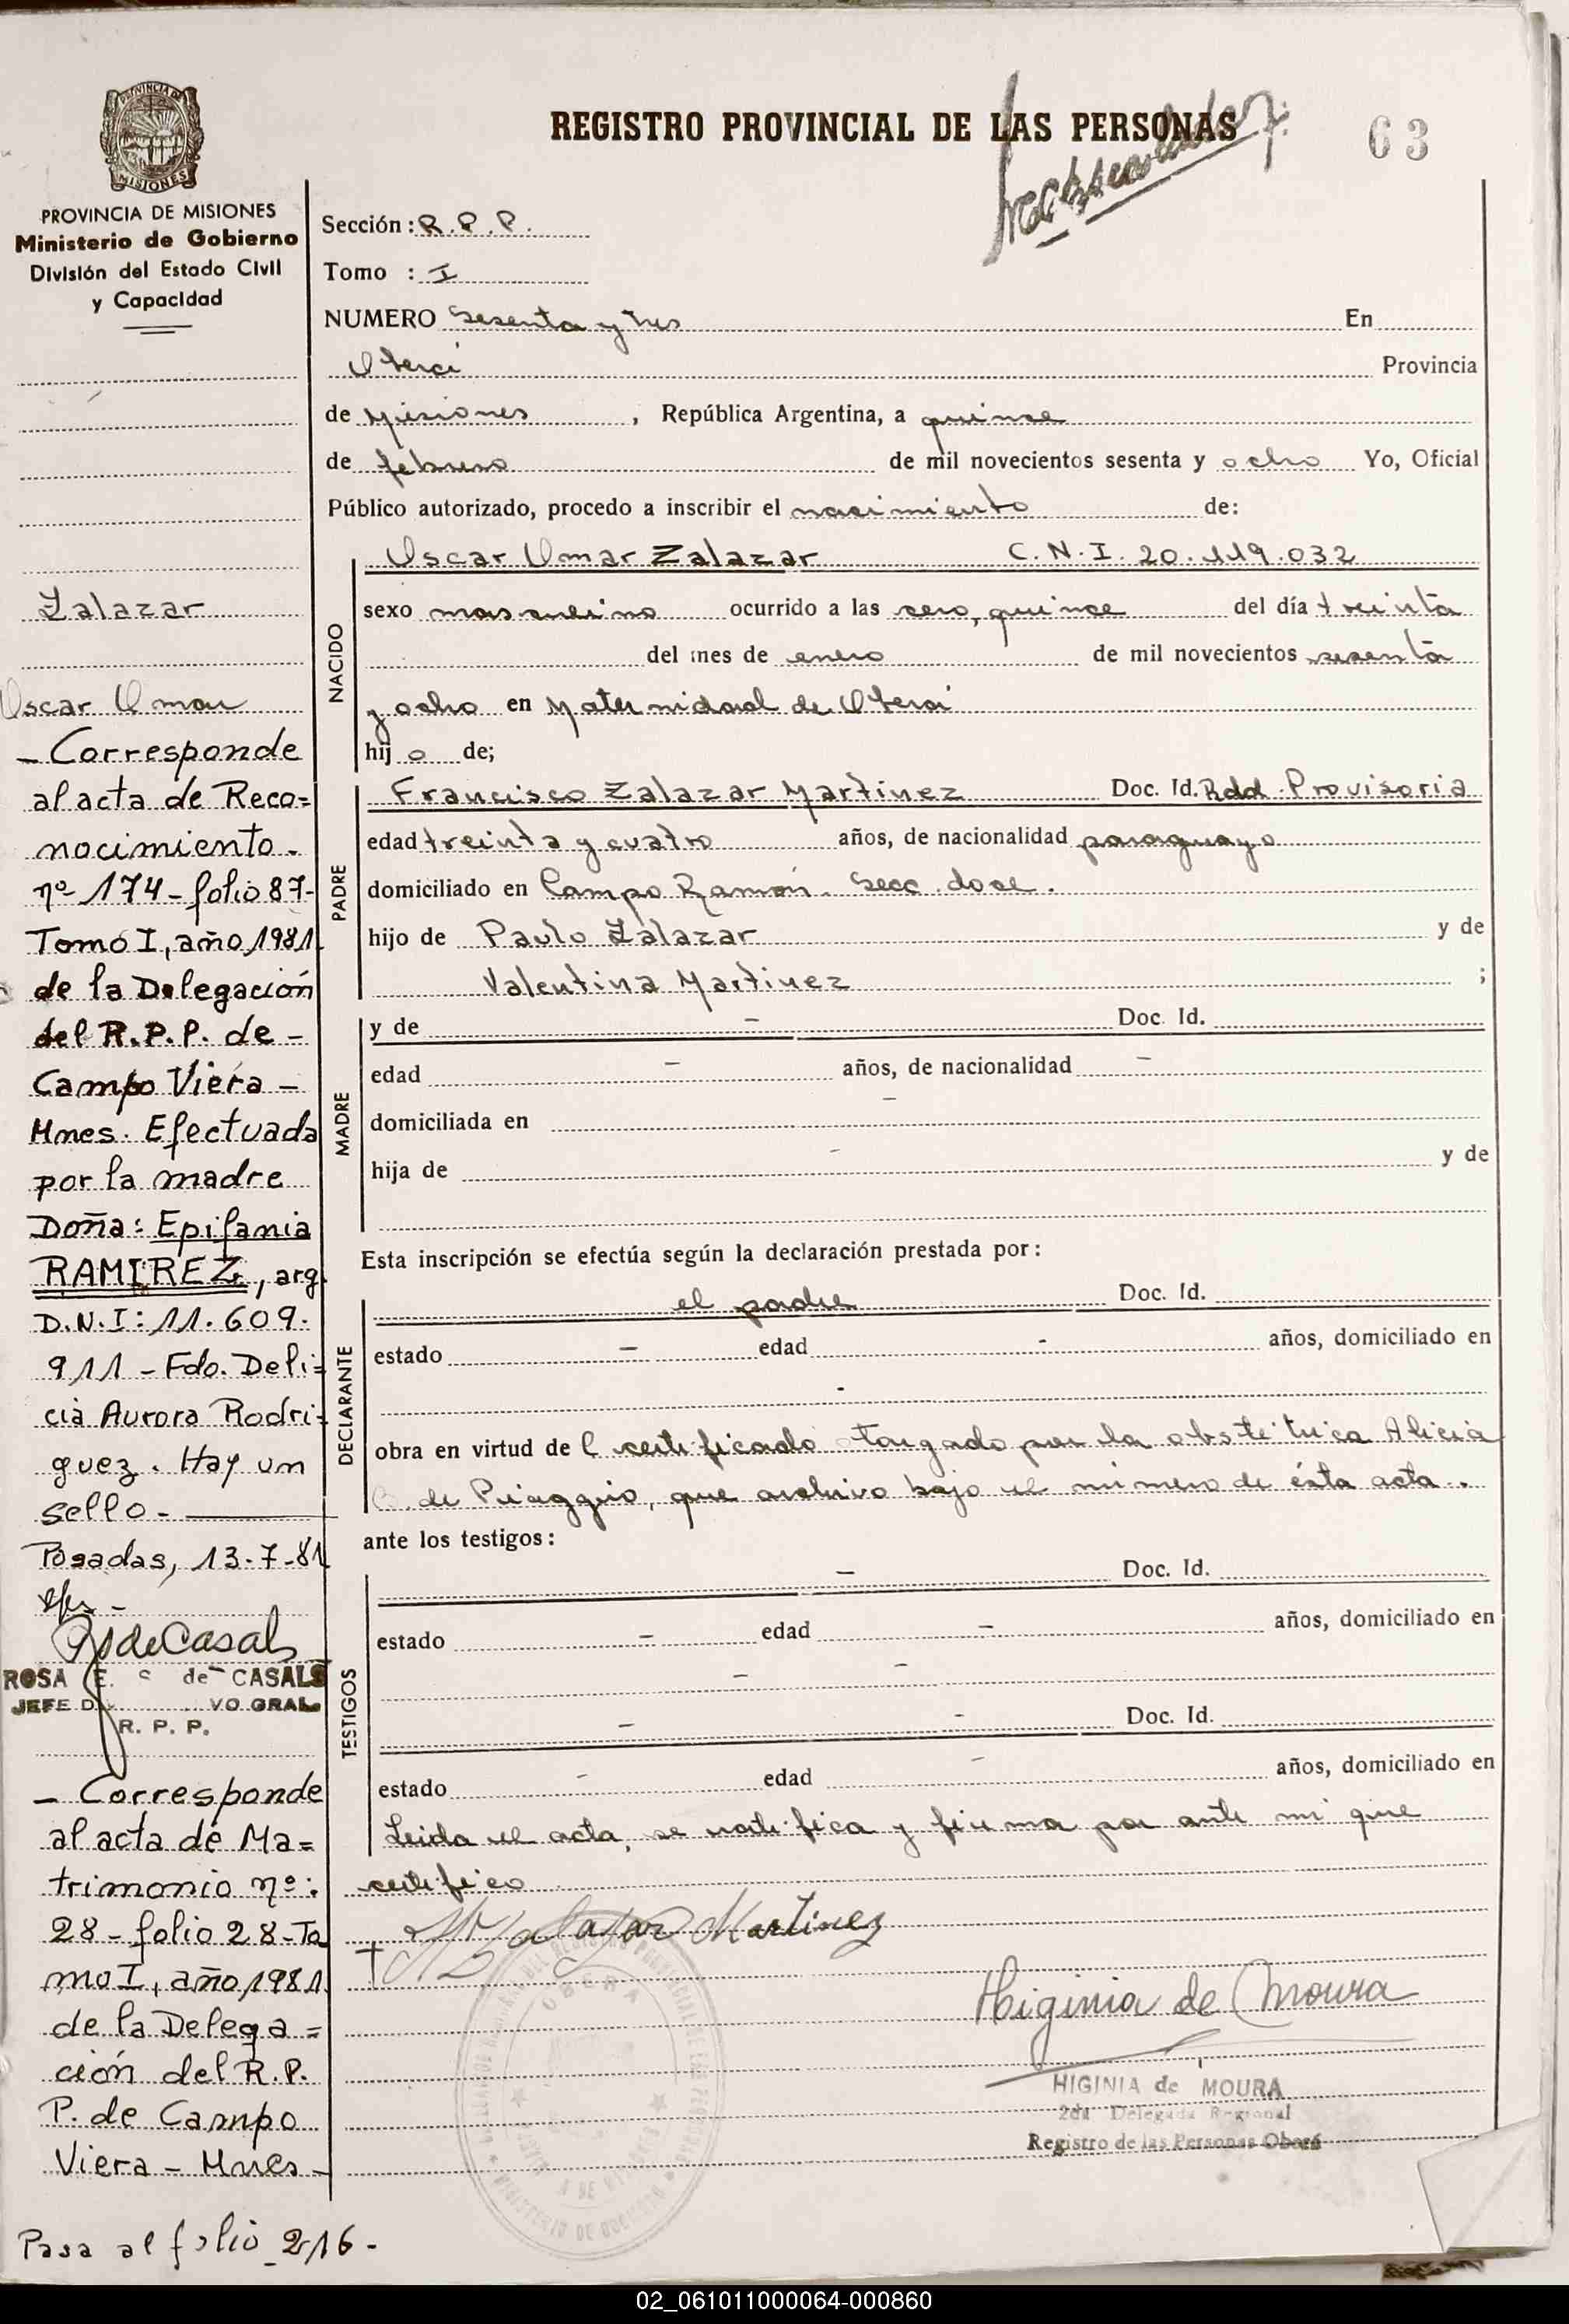 REGISTRO PROVINCIAL DE LAS PERSONAS
63
PROVINCIA DE MISIONES
Ministerio de Gobierno
División del Estado Civil
y Capacidad
Sección : R.P.P.
Tomo : I
NUMERO Sesenta y tres En
Oberá Provincia
de Misiones , República Argentina, a quince
de febrero de mil novecientos sesenta y ocho Yo, Oficial
Público autorizado, procedo a inscribir el nacimiento de:
NACIDO
Oscar Omar Zalazar C.N.I. 20.119.032
sexo masculino ocurrido a las cero, quince del día treinta
del mes de enero de mil novecientos sesenta
y ocho en Maternidad de Oberá
hijo de;
PADRE
Francisco Zalazar Martinez Doc. Id. Rdd. Provisoria
edad treinta y cuatro años, de nacionalidad paraguayo
domiciliado en Campo Ramón. Secc. doce.
hijo de Paulo Zalazar y de
Valentina Martinez ;
MADRE
y de - Doc. Id.
edad - años, de nacionalidad -
domiciliada en -
hija de - y de
Esta inscripción se efectúa según la declaración prestada por:
DECLARANTE
el padre Doc. Id.
estado - edad - años, domiciliado en
-
obra en virtud del certificado otorgado por la obstetrica Alicia
de Piaggio, que archivo bajo el número de ésta acta..
ante los testigos:
TESTIGOS
- Doc. Id.
estado - edad - años, domiciliado en
- -
- - Doc. Id.
estado - edad - años, domiciliado en
Leida el acta, se ratifica y firma por ante mi que
certifico
Zalazar Martinez
Higinia de Moura
HIGINIA de MOURA
2da Delegada Regional
Registro de las Personas Oberá
OBERA
Zalazar
Oscar Omar
- Corresponde
al acta de Reco=
nocimiento -
nº 174 - folio 87-
Tomo I, año 1981
de la Delegación
del R.P.P. de -
Campo Viera -
Mnes. Efectuada
por la madre
Doña: Epifania
RAMIREZ, arg.
D.N.I: 11.609.
911 - Fdo. Deli=
cia Aurora Rodri=
guez. Hay un
sello -
Posadas, 13-7-81
R de Casals
ROSA E. de CASALS
JEFE VO GRAL
R. P. P.
- Corresponde
al acta de Ma=
trimonio nº:
28 - folio 28 - To
mo I, año 1981
de la Delega=
ción del R.P.
P. de Campo
Viera - Mnes -
Pasa al folio 216 -
02_061011000064-000860